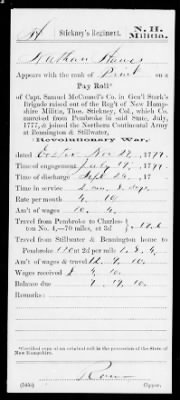 Stickney's Regiment. N. H. Militia.
Nathan
Appears with the rank of Privt on
Pay Roll*
of Capt. Samuel McConnell's Co. in Gen'l Stark's
Brigade raised out of the Reg't of New Hamp-
shire Militia, Thos. Stickney, Col., which Co.
marched from Pembroke in said State, July,
1777, & joined the Northern Continental Army
at Bennington & Stillwater,
Revolutionary War,
dated Exeter Nov 1777.
Time of engagement, July 1777.
Time of discharge Sept 17
Time in service 2 mos. days.
Rate per month 4 10
Am't of wages 10. 4.
Travel from Pembroke to Charles-
ton No. 4,—70 miles, at 3d
Travel from Stillwater & Bennington home to
Pembroke at 2d per mile
Am't of wages & travel 12. 10.
Wages received 4. 10.
Balance due 7. 19. 10
Remarks:
*Certified copy of an original roll in the possession of the State of
New Hampshire.
Copyer.